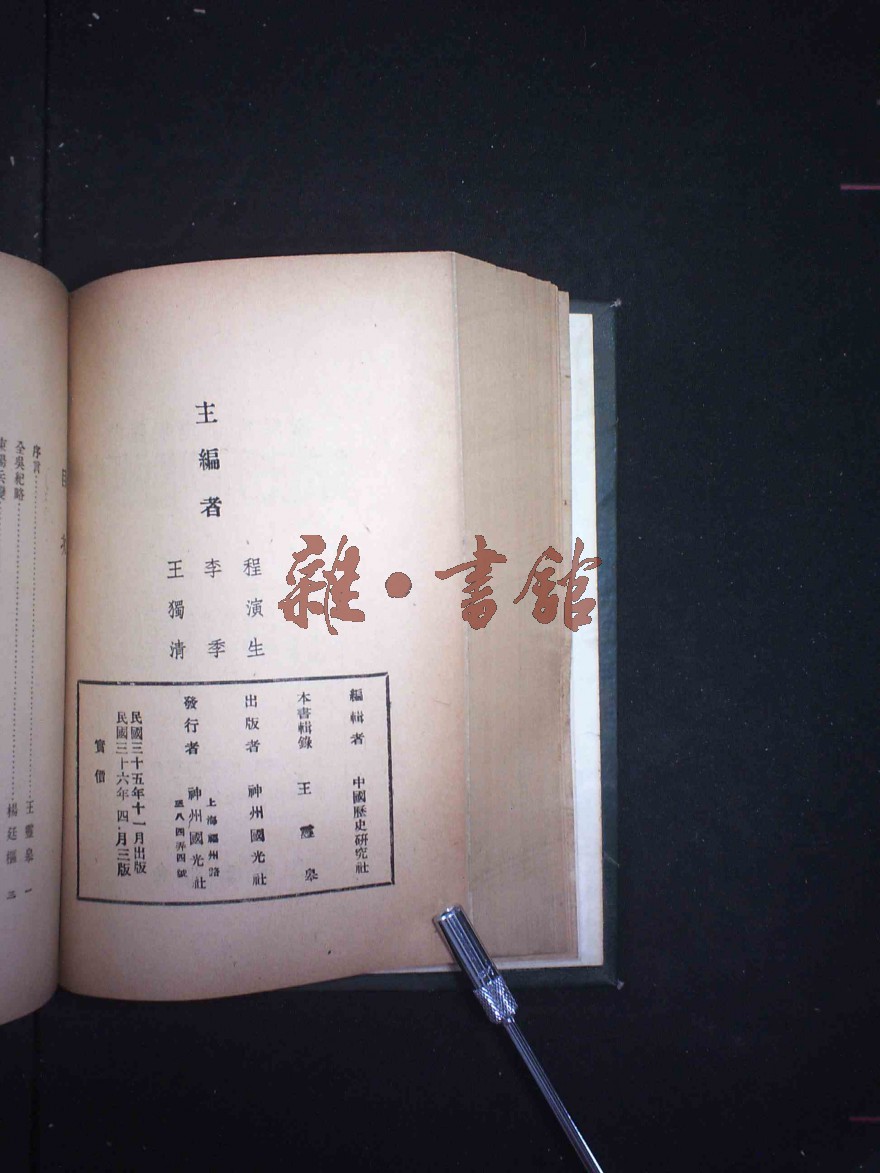 主編者
程演生
李季
王獨清
編輯者 中國歷史研究社
本書輯錄 王靈皋
出版者 神州國光社
發行者 神州國光社
上海福州路
弄四號
民國三十五年十一月出版
民國三十六年四月三版
實價
雜·書館
序言 王靈皋 一
全吳紀略 楊廷樞 三